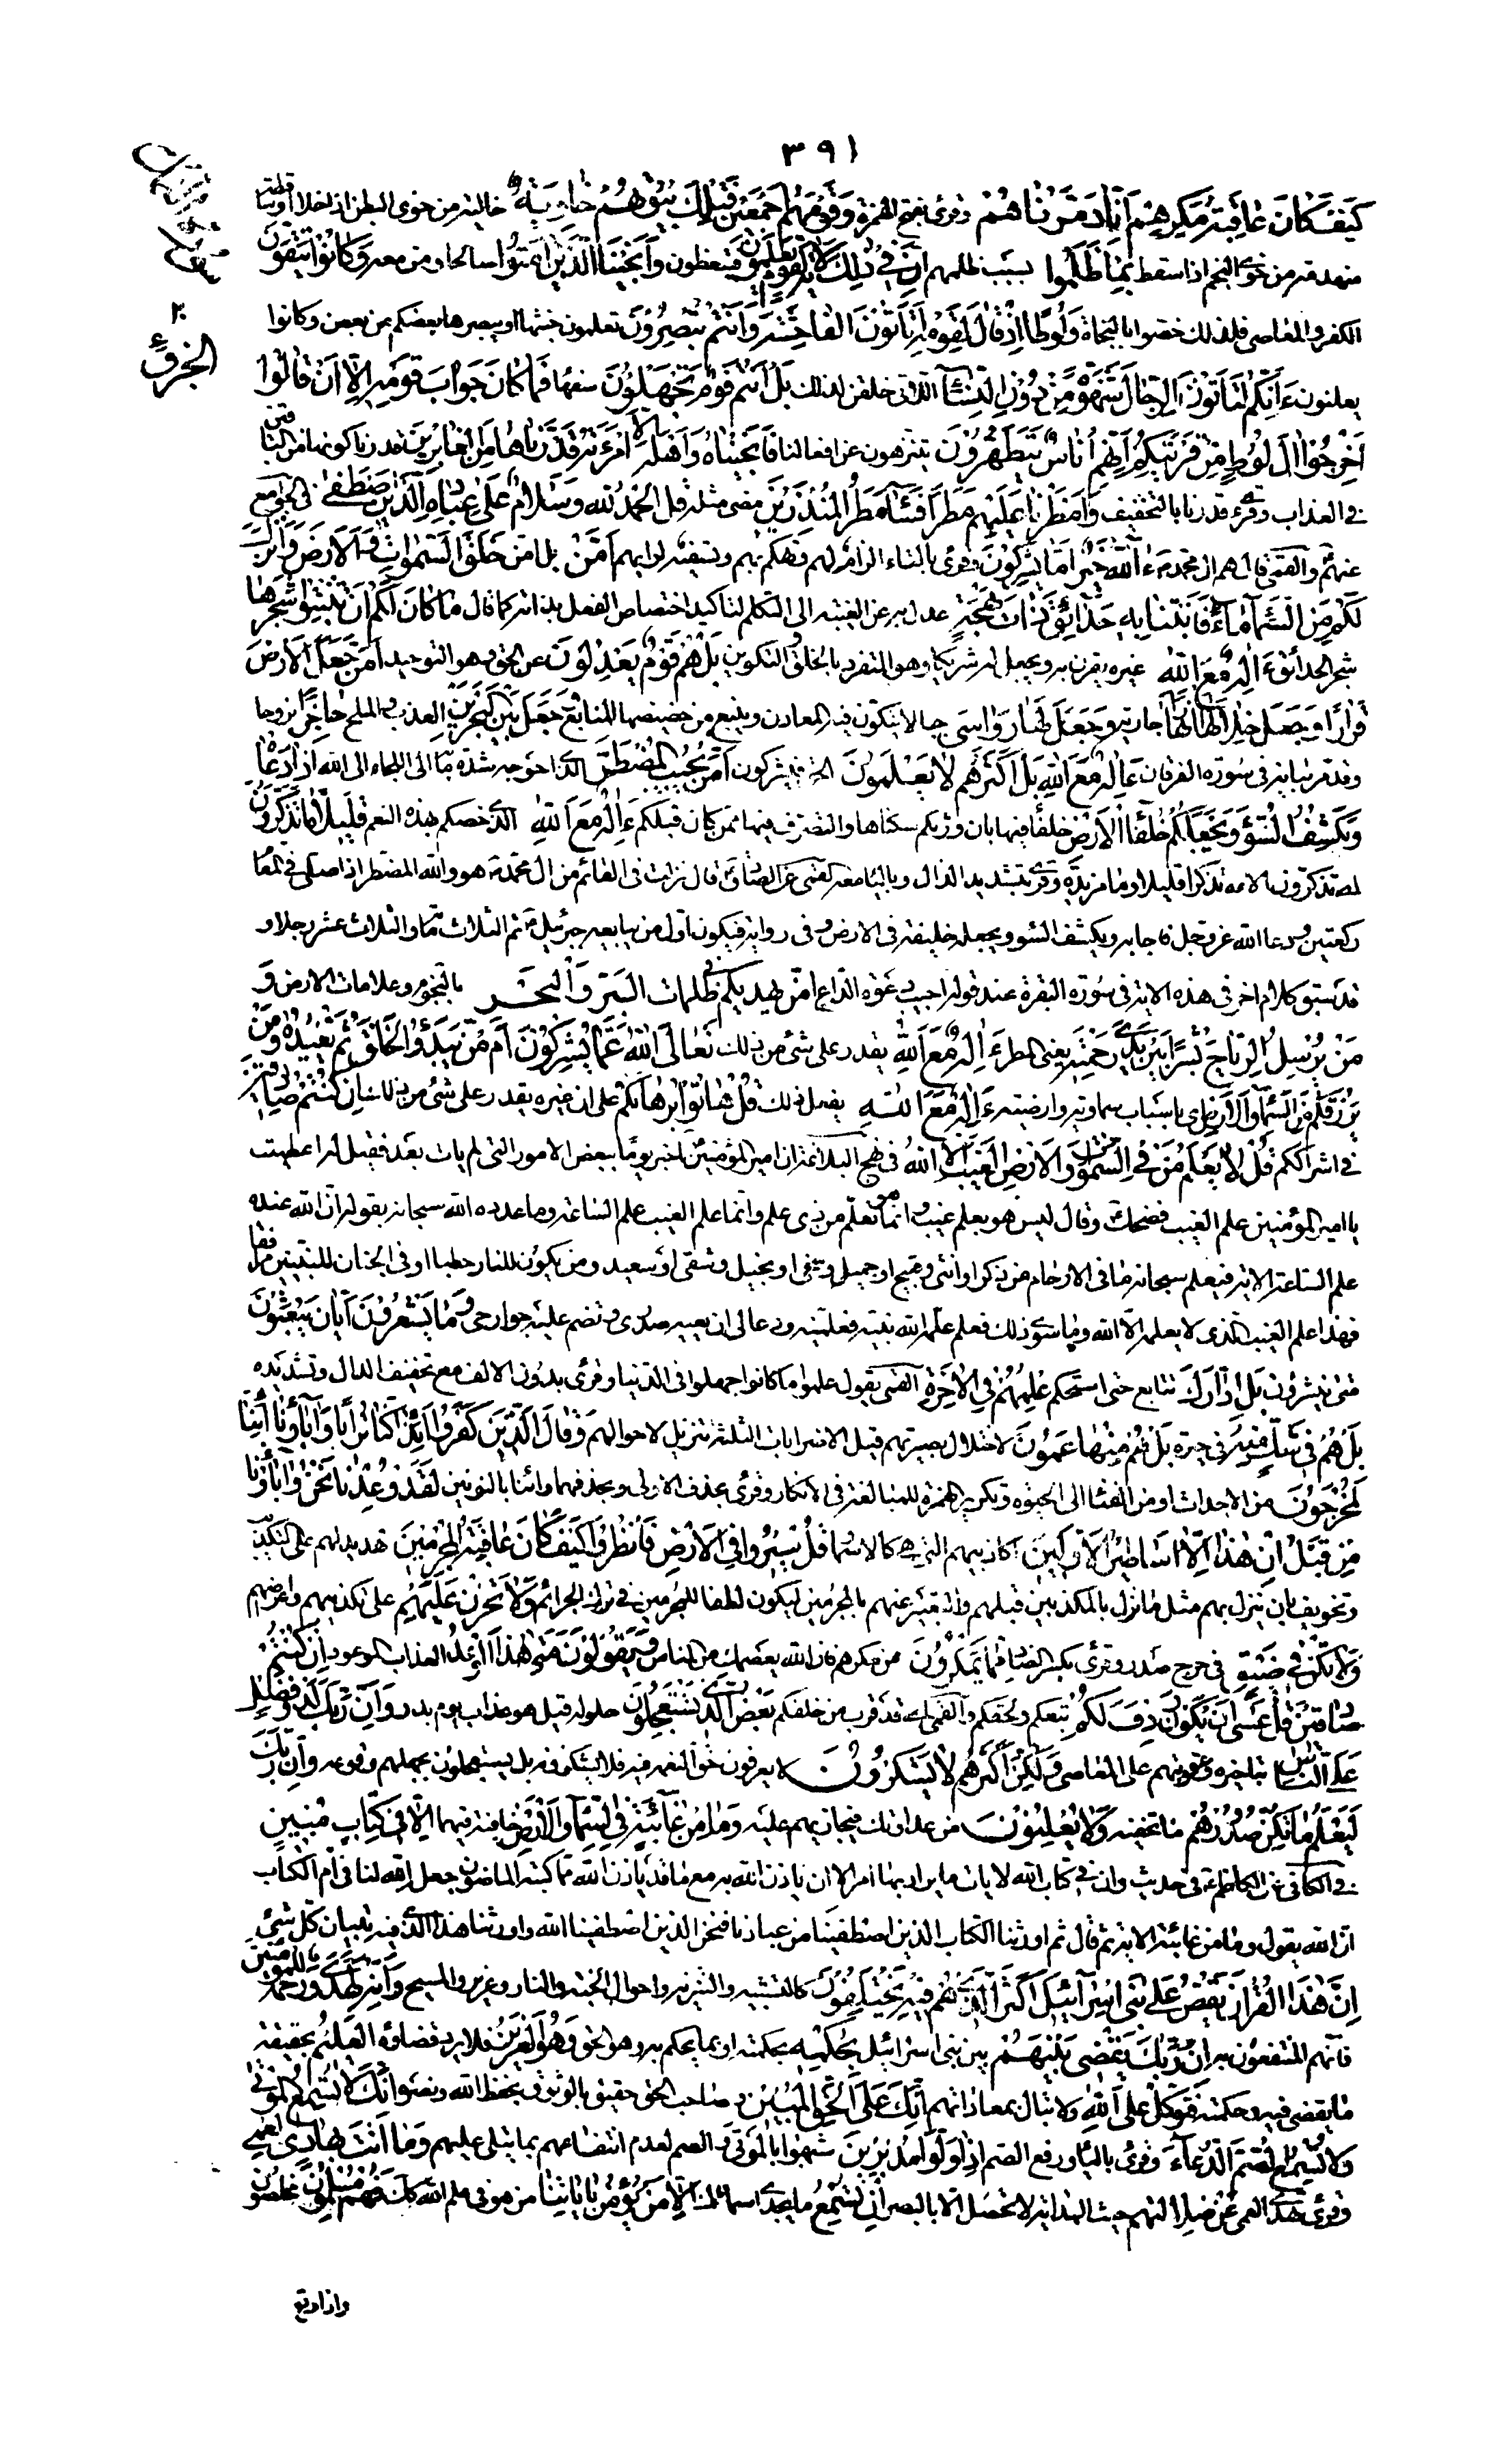 ٣٩١
كَيْفَ كَانَ عٰاقِبَةُ مَكْرِهِمْ اَنّٰا دَمَّرْنٰاهُمْ وقرئ بفتح الهمزة وَقَوْمَهُمْ اَجْمَعينَ فَتِلْكَ بُيُوتُهُمْ خٰاوِيَةً خالية من خوى البطن اذا خلا او ساقطة
منهدمة من خوى النجم اذا سقط بِمٰا ظَلَمُوا بسبب ظلمهم اِنَّ في ذٰلِكَ لَاٰيَةً لِقَوْمٍ يَعْلَمُونَ فيتعظون وَاَنْجَيْنَا الَّذينَ اٰمَنُوا صالحا ومن معه وَكٰانُوا يَتَّقُونَ
الكفر والمعاصى فلذلك خصوا بالنجاة وَلُوطًا اِذْ قٰالَ لِقَوْمِه اَتَأْتُونَ الْفٰاحِشَةَ وَاَنْتُمْ تُبْصِرُونَ تعلمون خبثها او يبصرها بعضكم من بعض وكانوا
يعلنون ءَاِنَّكُمْ لَتَأْتُونَ الرِّجٰالَ شَهْوَةً مِنْ دُونِ النِّسٰآءِ اللاتى خلقن لذلك بَلْ اَنْتُمْ قَوْمٌ تَجْهَلُونَ سفها فَمٰا كٰانَ جَوٰابَ قَوْمِه اِلّٰا اَنْ قٰالُوا
اَخْرِجُوا اٰلَ لُوطٍ مِنْ قَرْيَتِكُمْ اِنَّهُمْ اُنٰاسٌ يَتَطَهَّرُونَ يتنزهون عن افعالنا فَاَنْجَيْنٰاهُ وَاَهْلَهُ اِلَّا امْرَاَتَهُ قَدَّرْنٰاهٰا مِنَ الْغٰابِرينَ قدرنا كونها من الباقين
في العذاب وقرئ قدرنا بالتخفيف وَاَمْطَرْنٰا عَلَيْهِمْ مَطَرًا فَسٰآءَ مَطَرُ الْمُنْذَرينَ مضى مثله قُلِ الْحَمْدُ لِلّٰهِ وَسَلٰامٌ عَلٰى عِبٰادِهِ الَّذينَ اصْطَفٰى في الجوامع
عنهم والقمى قال هم ال محمد ءٰاللّٰهُ خَيْرٌ اَمّٰا يُشْرِكُونَ وقرئ بالتاء الزام لهم وتهكم بهم وتسفيه لرايهم اَمَّنْ بل امّن خَلَقَ السَّمٰوٰاتِ وَالْاَرْضَ وَاَنْزَلَ
لَكُمْ مِنَ السَّمٰآءِ مٰآءً فَاَنْبَتْنٰا بِه حَدٰائِقَ ذٰاتَ بَهْجَةٍ عدل به عن الغيبة الى التكلم لتاكيد اختصاص الفعل بذاته كما قال مٰا كٰانَ لَكُمْ اَنْ تُنْبِتُوا شَجَرَهٰا
شجر الحدائق ءَاِلٰهٌ مَعَ اللّٰهِ غيره يقرن به ويجعل له شريكا وهو المتفرد بالخلق والتكوين بَلْ هُمْ قَوْمٌ يَعْدِلُونَ عن الحق وهو التوحيد اَمَّنْ جَعَلَ الْاَرْضَ
قَرٰارًا وَجَعَلَ خِلٰالَهٰا اَنْهٰارًا جارية وَجَعَلَ لَهٰا رَوٰاسِيَ جبالا يتكون فيها المعادن وينبع من حضيضها المنابع وَجَعَلَ بَيْنَ الْبَحْرَيْنِ العذب والملح حٰاجِزًا برزخا
وقد مر بيانه في سورة الفرقان ءَاِلٰهٌ مَعَ اللّٰهِ بَلْ اَكْثَرُهُمْ لٰا يَعْلَمُونَ الحق فيشركون اَمَّنْ يُجيبُ الْمُضْطَرَّ الذي احوجه شدة ما الى اللجاء الى الله اِذٰا دَعٰاهُ
وَيَكْشِفُ السُّوٓءَ وَيَجْعَلُكُمْ خُلَفٰآءَ الْاَرْضِ خلفاء فيها بان ورثكم سكناها والتصرف فيها ممن كان قبلكم ءَاِلٰهٌ مَعَ اللّٰهِ الذي خصكم بهذه النعم قَليلًا مٰا تَذَكَّرُونَ
اى تذكرون الاءه تذكرا قليلا وما مزيدة وقرئ بتشديد الذال وبالياء معه القمى عن الصادق قال نزلت في القائم من ال محمد هو والله المضطر اذا صلى في المقام
ركعتين ودعا الله عز وجل فاجابه ويكشف السوء ويجعله خليفة في الارض وفى رواية فيكون اول من يبايعه جبرئيل ثم الثلاث مأة والثلاث عشر رجلا و
قد سبق كلام اخر في هذه الاية في سورة البقرة عند قوله اجيب دعوة الداع اَمَّنْ يَهْديكُمْ في ظُلُمٰاتِ الْبَرِّ وَالْبَحْرِ بالنجوم وعلامات الارض وَ
مَنْ يُرْسِلُ الرِّيٰاحَ بُشْرًا بَيْنَ يَدَيْ رَحْمَتِه يعنى المطر ءَاِلٰهٌ مَعَ اللّٰهِ يقدر على شئ من ذلك تَعٰالَى اللّٰهُ عَمّٰا يُشْرِكُونَ اَمَّنْ يَبْدَؤُا الْخَلْقَ ثُمَّ يُعيدُهُ وَمَنْ
يَرْزُقُكُمْ مِنَ السَّمٰآءِ وَالْاَرْضِ اى باسباب سماوية وارضية ءَاِلٰهٌ مَعَ اللّٰهِ يفعل ذلك قُلْ هٰاتُوا بُرْهٰانَكُمْ على ان غيره يقدر على شئ من ذلك اِنْ كُنْتُمْ صٰادِقينَ
في اشراككم قُلْ لٰا يَعْلَمُ مَنْ فِي السَّمٰوٰاتِ وَالْاَرْضِ الْغَيْبَ اِلَّا اللّٰهُ في نهج البلاغة ان امير المؤمنين اخبر يوما ببعض الامور التى لم يات بعد فقيل له اعطيت
يا امير المؤمنين علم الغيب فضحك وقال ليس هو بعلم غيب وانما هو تعلم من ذى علم وانما علم الغيب علم الساعة وما عدده الله سبحانه بقوله ان الله عنده
علم الساعة الاية فيعلم سبحانه ما في الارحام من ذكر او انثى وقبيح او جميل وسخى او بخيل وشقى او سعيد ومن يكون للنار حطبا او في الجنان للنبيين مرافقا
فهذا علم الغيب الذى لا يعلمه الا الله وما سوى ذلك فعلم علمه الله نبيه فعلمنيه ودعا لى ان يعيه صدرى وتضم عليه جوارحى وَمٰا يَشْعُرُونَ اَيّٰانَ يُبْعَثُونَ
متى ينشرون بَلِ ادّٰارَكَ تتابع حتى استحكم عِلْمُهُمْ فِي الْاٰخِرَةِ القمى يقول علموا ما كانوا جهلوا في الدنيا وقرئ بدون الالف مع تخفيف الدال وتشديده
بَلْ هُمْ في شَكٍّ مِنْهٰا في حيرة بَلْ هُمْ مِنْهٰا عَمُونَ لاختلال بصيرتهم قيل الاضرابات الثلثة تنزيل لاحوالهم وَقٰالَ الَّذينَ كَفَرُوا ءَاِذٰا كُنّٰا تُرٰابًا وَاٰبٰآؤُنٰا اَئِنّٰا
لَمُخْرَجُونَ من الاجداث او من الفناء الى الحيوة وتكرير الهمزة للمبالغة في الانكار وقرئ بحذف الاولى وبحذفهما واننا بالنونين لَقَدْ وُعِدْنٰا هٰذٰا نَحْنُ وَاٰبٰآؤُنٰا
مِنْ قَبْلُ اِنْ هٰذٰا اِلّٰا اَسٰاطيرُ الْاَوَّلينَ اكاذيبهم التى هى كالاسمار قُلْ سيرُوا فِي الْاَرْضِ فَانْظُرُوا كَيْفَ كٰانَ عٰاقِبَةُ الْمُجْرِمينَ تهديد لهم على التكذيب
وتخويف بان ينزل بهم مثل ما نزل بالمكذبين قبلهم والتعبير عنهم بالمجرمين ليكون لطفا للمجرمين في ترك الجرائم وَلٰا تَحْزَنْ عَلَيْهِمْ على تكذيبهم واعراضهم
وَلٰا تَكُنْ في ضَيْقٍ في حرج صدر وقرئ بكسر الضاد مِمّٰا يَمْكُرُونَ من مكرهم فان الله يعصمك من الناس وَيَقُولُونَ مَتٰى هٰذَا الْوَعْدُ العذاب الموعود اِنْ كُنْتُمْ
صٰادِقينَ قُلْ عَسٰى اَنْ يَكُونَ رَدِفَ لَكُمْ تبعكم ولحقكم والقمى اى قد قرب من خلفكم بَعْضُ الَّذي تَسْتَعْجِلُونَ حلوله قيل هو عذاب يوم بدر وَاِنَّ رَبَّكَ لَذُو فَضْلٍ
عَلَى النّٰاسِ بتاخير عقوبتهم على المعاصى وَلٰكِنَّ اَكْثَرَهُمْ لٰا يَشْكُرُونَ لا يعرفون حق النعمة فيه فلا يشكرونه بل يستعجلون بجهلهم وقوعه وَاِنَّ رَبَّكَ
لَيَعْلَمُ مٰا تُكِنُّ صُدُورُهُمْ ما تخفيه وَمٰا يُعْلِنُونَ من عداوتك فيجازيهم عليه وَمٰا مِنْ غٰآئِبَةٍ فِي السَّمٰآءِ وَالْاَرْضِ خافية فيهما اِلّٰا في كِتٰابٍ مُبينٍ
في الكافي عن الكاظم في حديث وان في كتاب الله لايات ما يراد بها امر الا ان ياذن الله به مع ما قد ياذن الله مما كتبه الماضون جعله الله لنا في ام الكتاب
ان الله يقول وما من غائبة الاية ثم قال ثم اورثنا الكتاب الذين اصطفينا من عبادنا فنحن الذين اصطفينا الله واورثنا هذا الذى فيه تبيان كل شئ
اِنَّ هٰذَا الْقُرْاٰنَ يَقُصُّ عَلٰى بَني اِسْرٰآئيلَ اَكْثَرَ الَّذي هُمْ فيهِ يَخْتَلِفُونَ كالتشبيه والتنزيه واحوال الجنة والنار وعزير والمسيح وَاِنَّهُ لَهُدًى وَرَحْمَةٌ لِلْمُؤْمِنينَ
فانهم المنتفعون به اِنَّ رَبَّكَ يَقْضي بَيْنَهُمْ بين بنى اسرائيل بِحُكْمِه بحكمته او بما يحكم به وهو الحق وَهُوَ الْعَزيزُ فلا يرد قضاؤه الْعَليمُ بحقيقة
ما يقضى فيه وحكمته فَتَوَكَّلْ عَلَى اللّٰهِ ولا تبال بمعاداتهم اِنَّكَ عَلَى الْحَقِّ الْمُبينِ وصاحب الحق حقيق بالوثوق بحفظ الله ونصره اِنَّكَ لٰا تُسْمِعُ الْمَوْتٰى
وَلٰا تُسْمِعُ الصُّمَّ الدُّعٰآءَ وقرئ بالياء ورفع الصم اِذٰا وَلَّوْا مُدْبِرينَ شبهوا بالموتى والصم لعدم انتفاعهم بما يتلى عليهم وَمٰا اَنْتَ بِهٰادِي الْعُمْيِ
وقرئ تهدى العمى عَنْ ضَلٰالَتِهِمْ حيث الهداية لا تحصل الا بالبصر اِنْ تُسْمِعُ ما يجدى اسماعك اِلّٰا مَنْ يُؤْمِنُ بِاٰيٰاتِنٰا من هو في علم الله كذلك فَهُمْ مُسْلِمُونَ مخلصون
واذا وقع
٢٠
الجزؤ